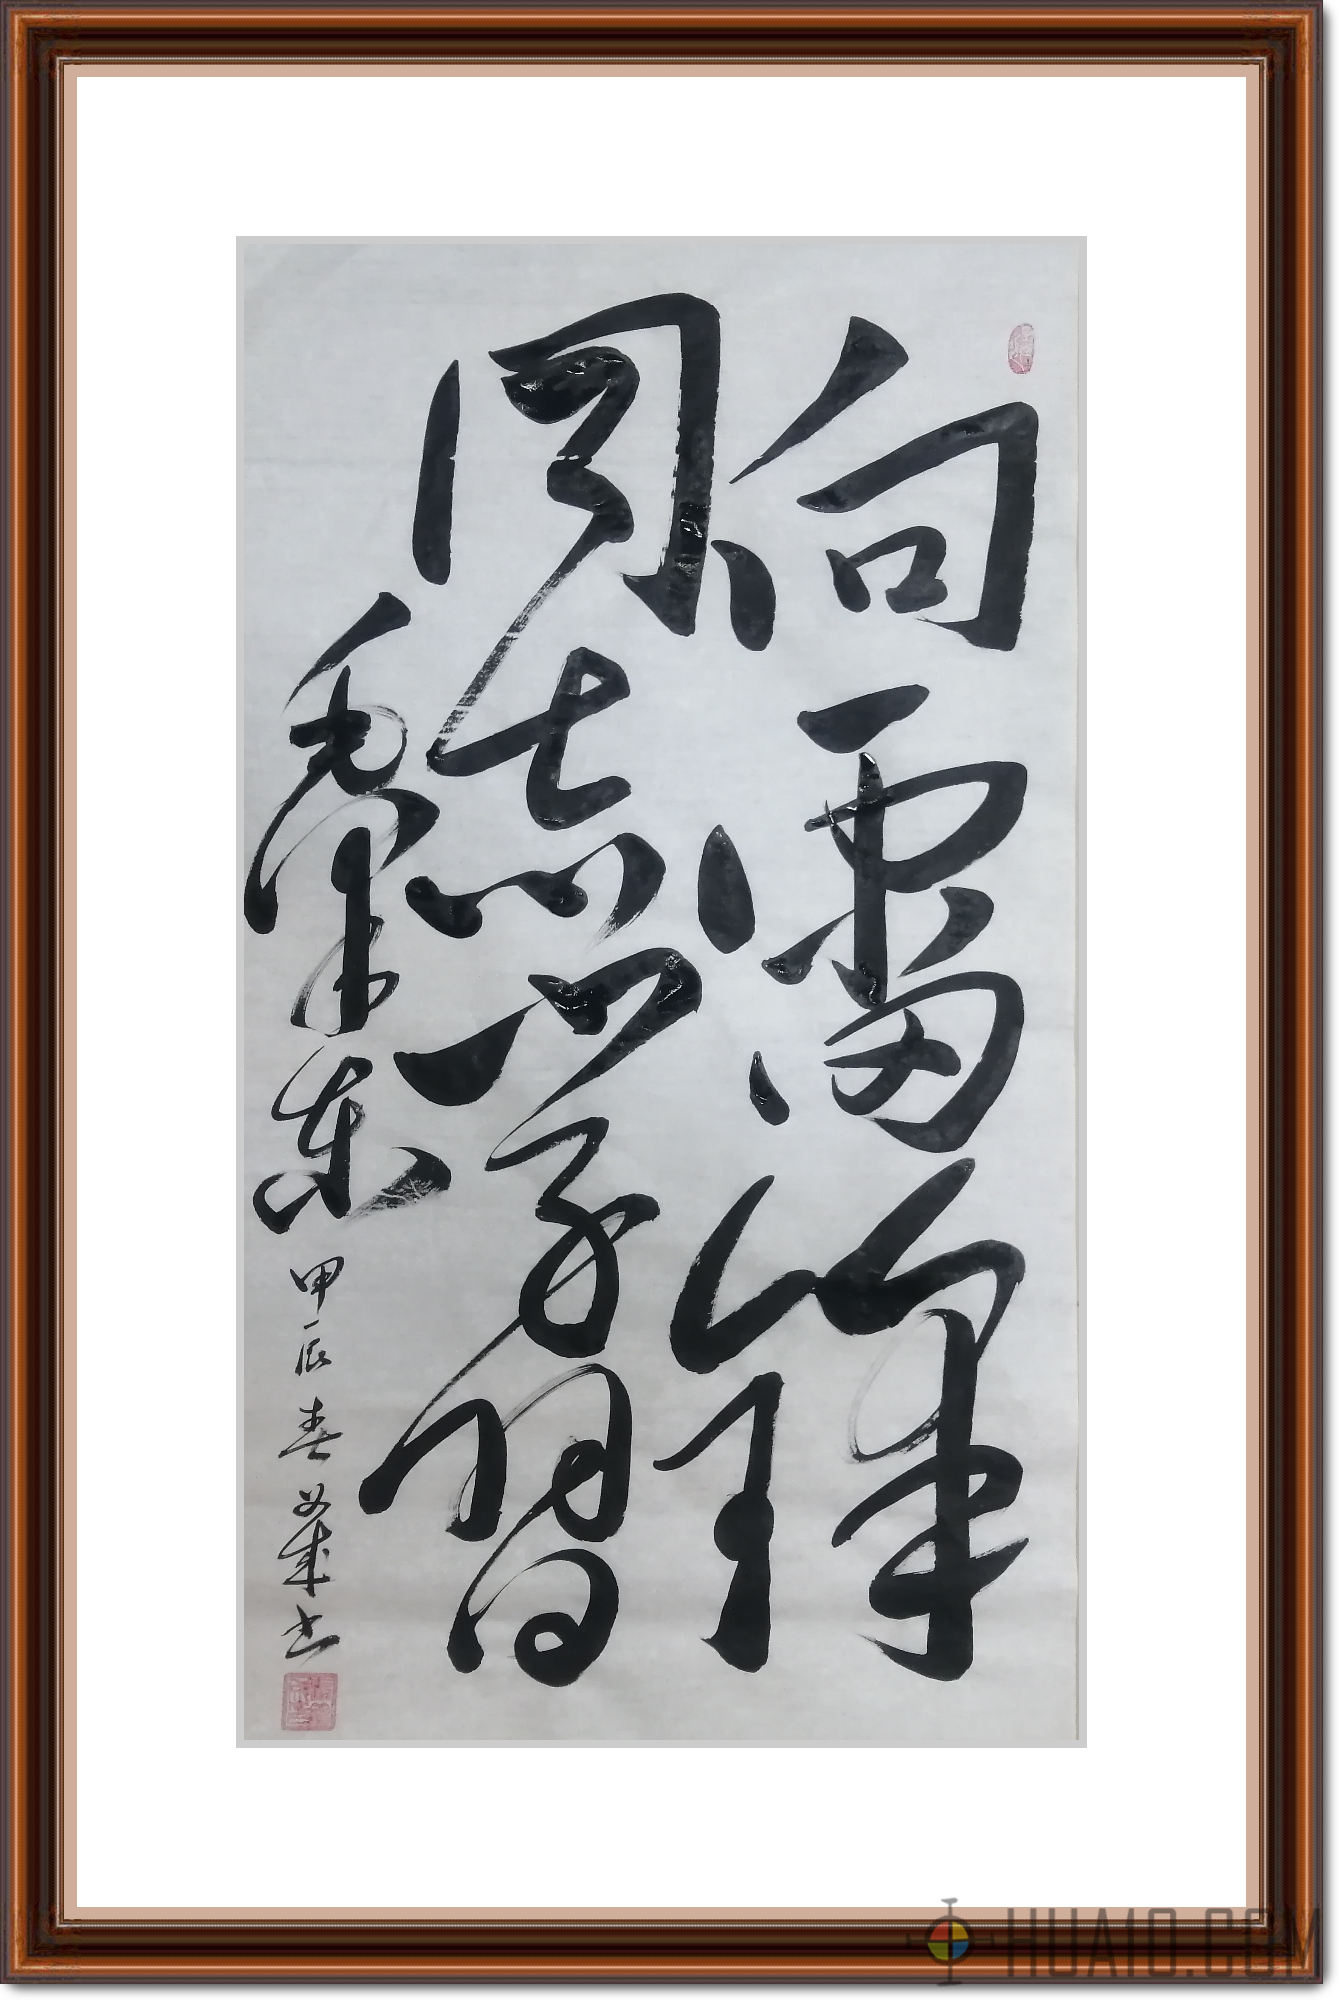 向雷锋
同志学习
毛泽东
甲辰春
书
HUA10.COM